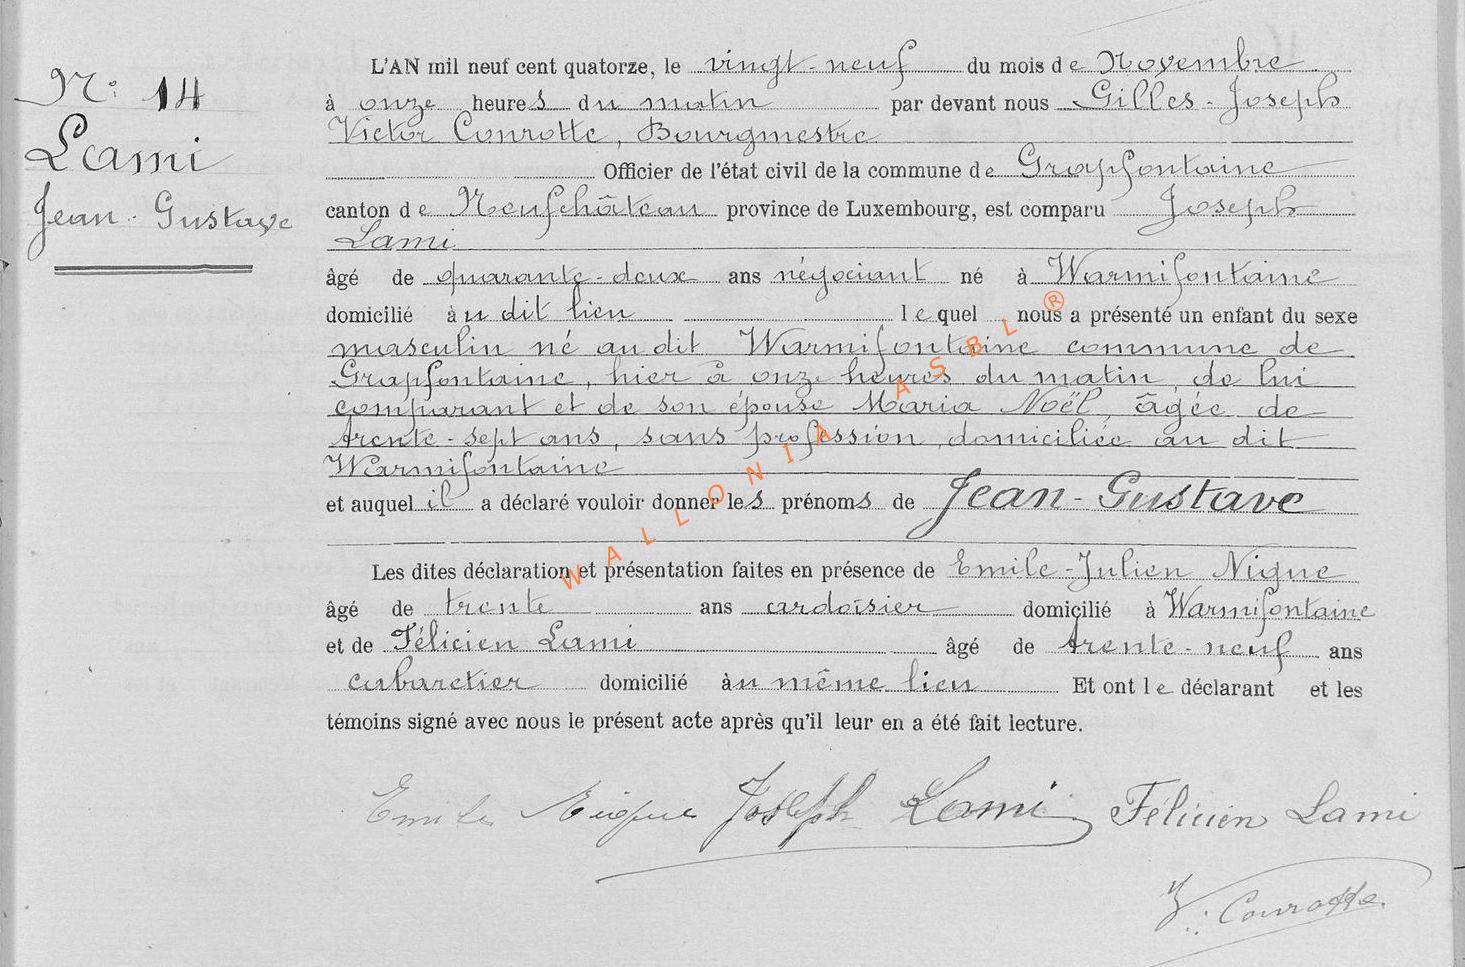 N° 14
Lami
Jean-Gustave
L'AN mil neuf cent quatorze, le vingt-neuf du mois de Novembre
à onze heures du matin par devant nous Gilles-Joseph
Victor Conrotte, Bourgmestre
Officier de l'état civil de la commune de Grapfontaine
canton de Neufchâteau province de Luxembourg, est comparu Joseph
Lami
âgé de quarante-deux ans négociant né à Warmifontaine
domicilié àu dit lieu lequel nous a présenté un enfant du sexe
masculin né au dit Warmifontaine commune de
Grapfontaine, hier à onze heures du matin, de lui
comparant et de son épouse Maria Noël, âgée de
trente-sept ans, sans profession, domiciliée au dit
Warmifontaine
et auquel il a déclaré vouloir donner les prénoms de Jean-Gustave
Les dites déclaration et présentation faites en présence de Emile-Julien Nigue
âgé de trente ans ardoisier domicilié à Warmifontaine
et de Félicien Lami âgé de trente-neuf ans
cabaretier domicilié àu même lieu Et ont le déclarant et les
témoins signé avec nous le présent acte après qu'il leur en a été fait lecture.
Emile Nigue Joseph Lami Félicien Lami
V. Conrotte.
WALLONIA ASBL ®